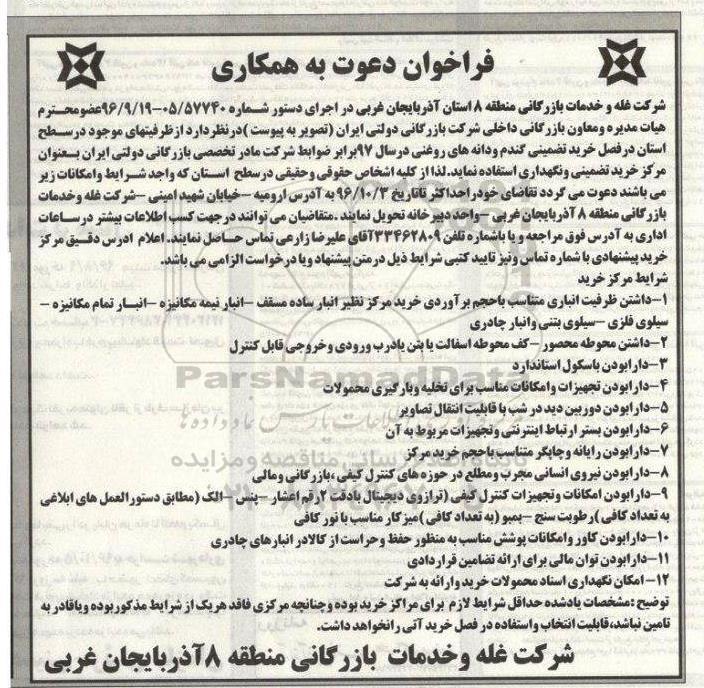 فراخوان دعوت به همکاری
شرکت غله و خدمات بازرگانی منطقه ۸ استان آذربایجان غربی در اجرای دستور شماره ۰۵/۵۷۷۴۰-۹۶/۹/۱۹ عضو محترم
هیات مدیره ومعاون بازرگانی داخلی شرکت بازرگانی دولتی ایران (تصویر به پیوست) درنظر دارد از ظرفیتهای موجود درسطح
استان در فصل خرید تضمینی گندم ودانه های روغنی درسال ۹۷ برابر ضوابط شرکت مادر تخصصی بازرگانی دولتی ایران بعنوان
مرکز خرید تضمینی ونگهداری استفاده نماید.لذا از کلیه اشخاص حقوقی وحقیقی درسطح استان که واجد شرایط وامکانات زیر
می باشند دعوت می گردد تقاضای خودر احداکثر تاتاریخ ۹۶/۱۰/۳ به آدرس ارومیه –خیابان شهید امینی –شرکت غله وخدمات
بازرگانی منطقه ۸ آذربایجان غربی –واحد دبیرخانه تحویل نمایند .متقاضیان می توانند درجهت کسب اطلاعات بیشتر در ساعات
اداری به آدرس فوق مراجعه و یا باشماره تلفن ۳۳۴۶۲۸۰۹ آقای علیرضا زارعی تماس حاصل نمایند. اعلام ادرس دقیق مرکز
خرید پیشنهادی با شماره تماس ونیز تایید کتبی شرایط ذیل در متن پیشنهاد ویا درخواست الزامی می باشد.
شرایط مرکز خرید
۱–داشتن ظرفیت انباری متناسب باحجم برآوردی خرید مرکز نظیر انبار ساده مسقف –انبار نیمه مکانیزه –انبار تمام مکانیزه –
سیلوی فلزی –سیلوی بتنی وانبار چادری
۲–داشتن محوطه محصور –کف محوطه اسفالت یا بتن یادرب ورودی وخروجی قابل کنترل
۳–دارابودن باسکول استاندارد
۴–دارابودن تجهیزات وامکانات مناسب برای تخلیه وبارگیری محمولات
۵–دارابودن دوربین دید در شب با قابلیت انتقال تصاویر
۶–دارابودن بستر ارتباط اینترنتی وتجهیزات مربوط به آن
۷–دارابودن رایانه وچاپگر متناسب باحجم خرید مرکز
۸–دارابودن نیروی انسانی مجرب ومطلع در حوزه های کنترل کیفی ،بازرگانی ومالی
۹–دارابودن امکانات وتجهیزات کنترل کیفی (ترازوی دیجیتال بادقت ۲رقم اعشار –بنس –الک (مطابق دستورالعمل های ابلاغی
به تعداد کافی )رطوبت سنج –بمبو (به تعداد کافی )میز کار مناسب با نور کافی
۱۰–دارابودن کاور وامکانات پوشش مناسب به منظور حفظ وحراست از کالادر انبارهای چادری
۱۱–دارابودن توان مالی برای ارائه تضامین قراردادی
۱۲–امکان نگهداری اسناد محمولات خرید وارائه به شرکت
توضیح :مشخصات یادشده حداقل شرایط لازم برای مراکز خرید بوده وچنانچه مرکزی فاقد هریک از شرایط مذکور بوده ویاقادر به
تامین نباشد،قابلیت انتخاب واستفاده در فصل خرید آتی رانخواهد داشت.
شرکت غله وخدمات بازرگانی منطقه ۸آذربایجان غربی
ParsNamadData